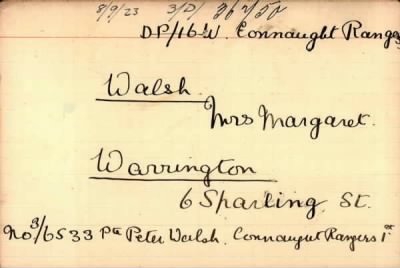 8/9/23 3/D/ 367/50
DP/16 W. Connaught Rangers
Walsh.
Mrs Margaret.
Warrington
6 Sparling St.
No 3/6533 Pte Peter Walsh. Connaught Rangers 1st